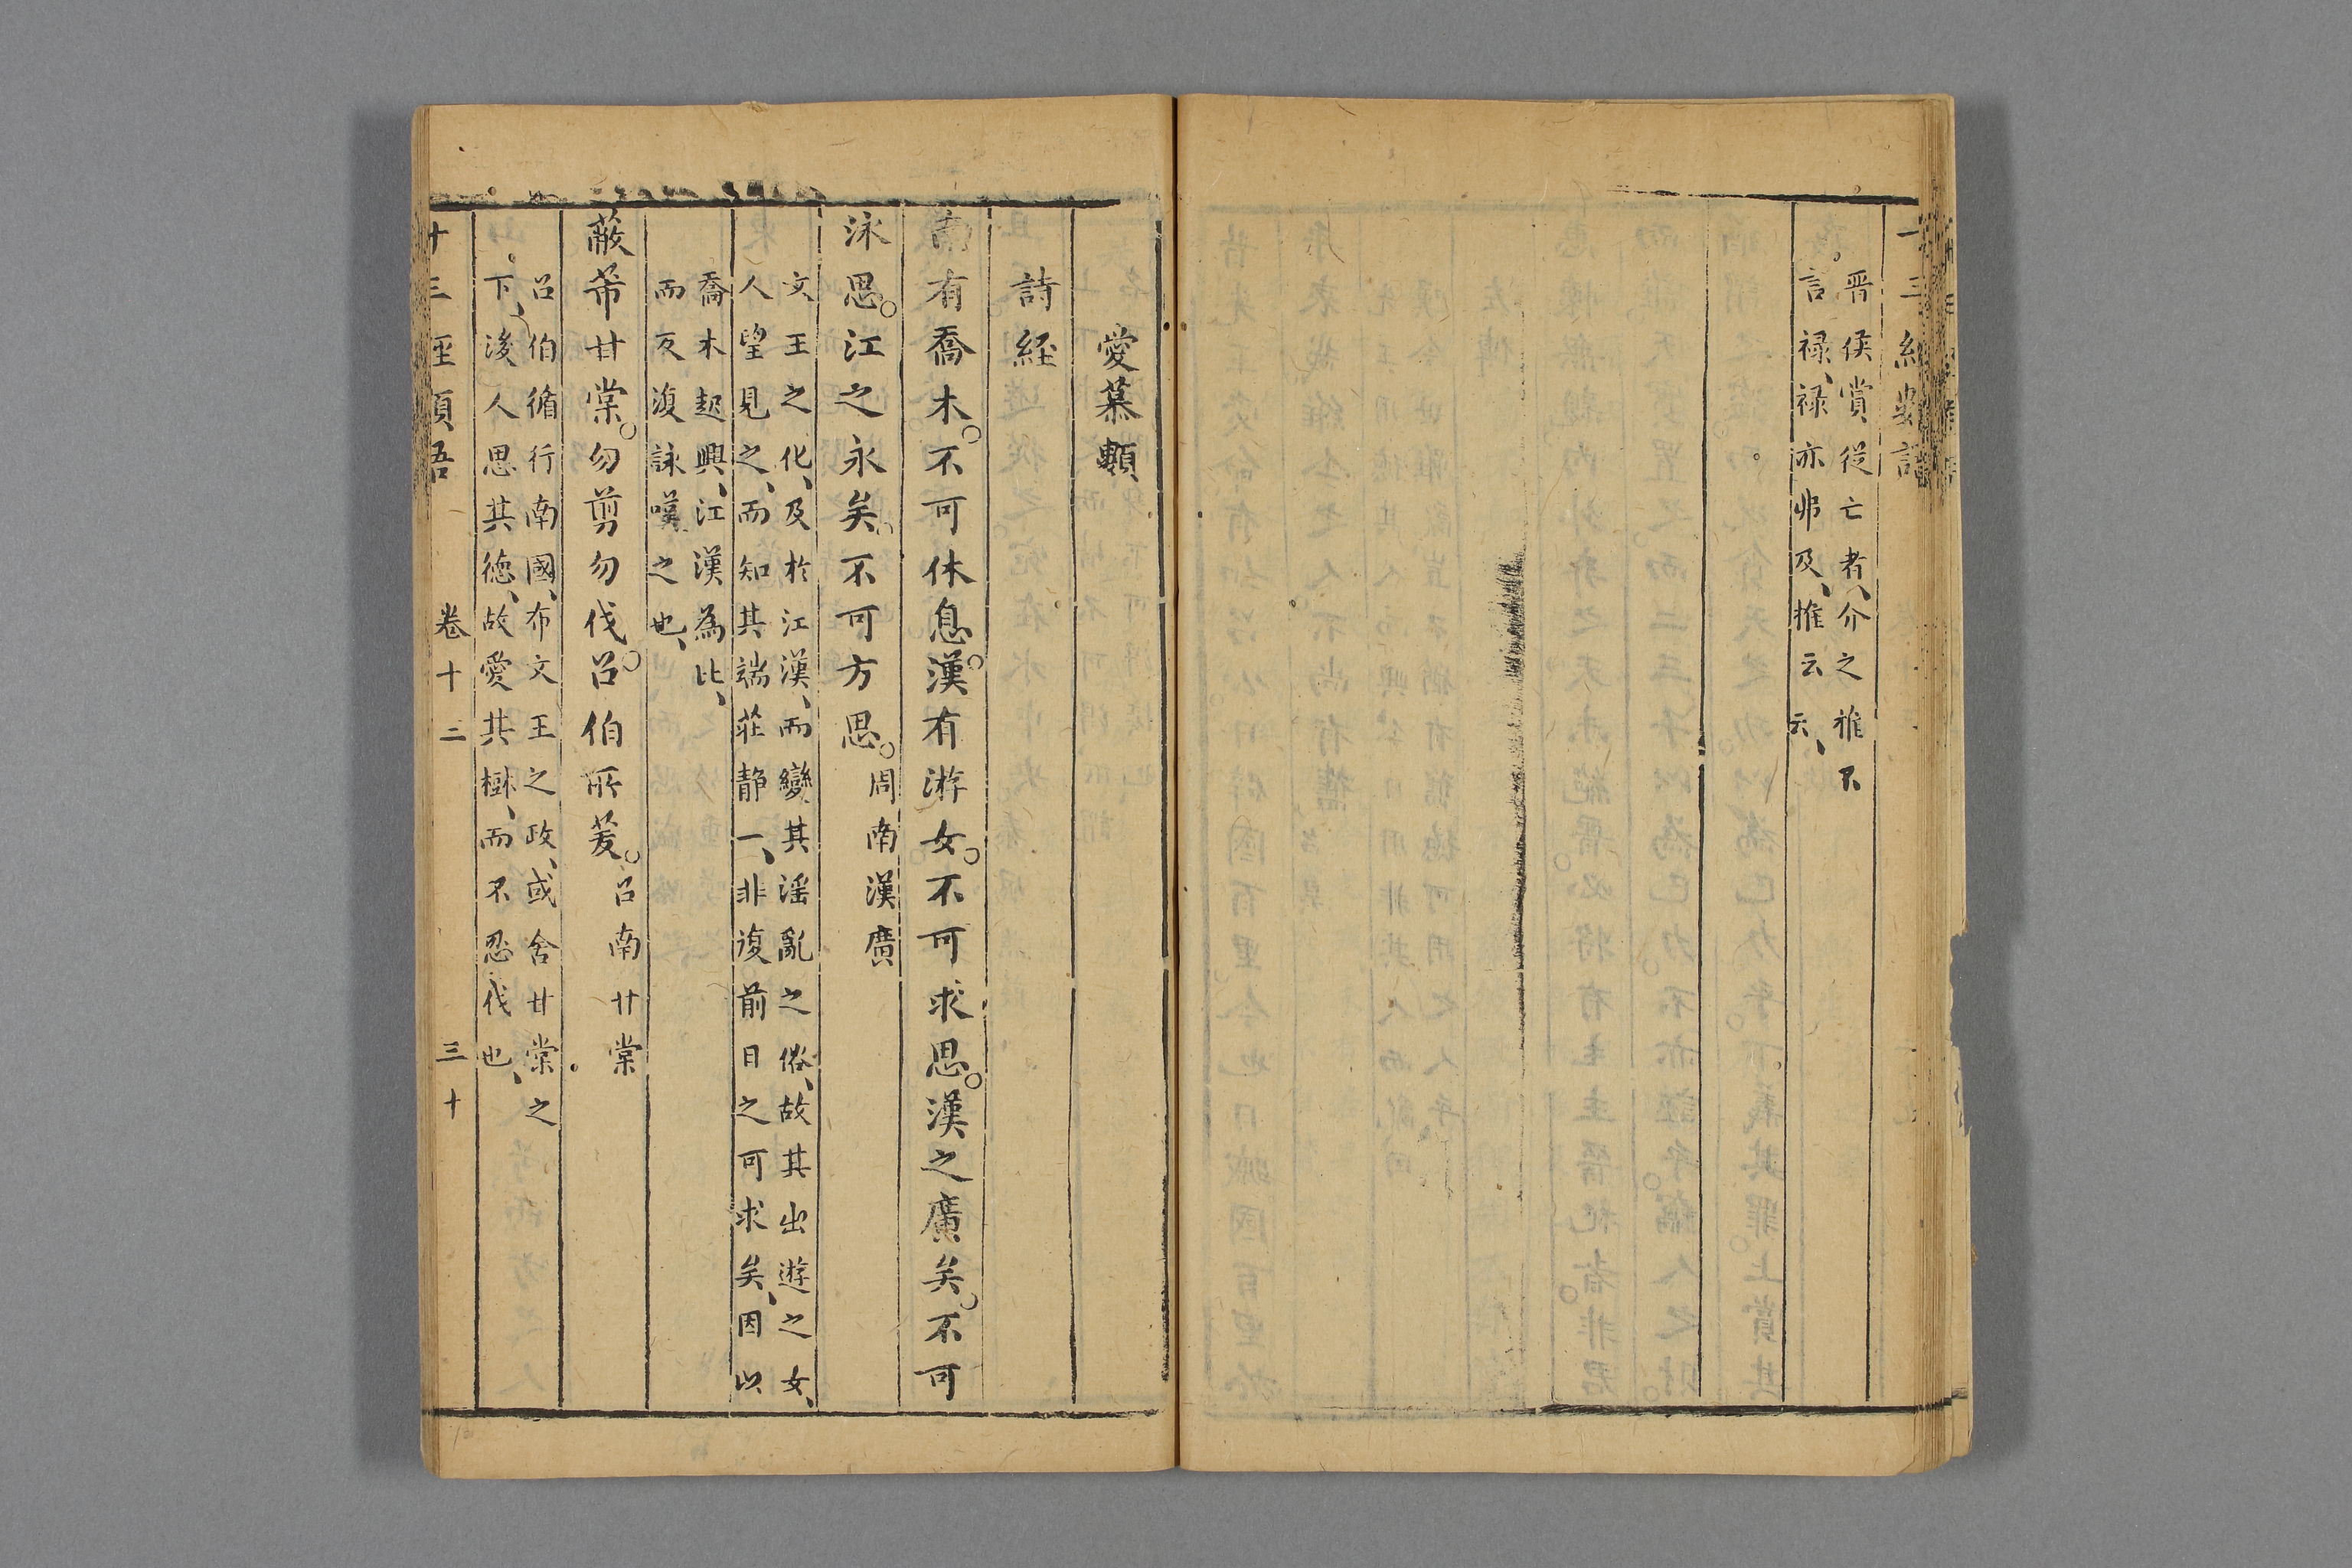 十三經類語
晉侯賞從亡者、介之推不
言禄、禄亦弗及、推云云、
愛慕類
詩経
南有喬木。不可休息。漢有游女。不可求思。漢之廣矣。不可
泳思。江之永矣。不可方思。周南漢廣
文王之化、及於江漢、而變其淫亂之俗、故其出遊之女、
人望見之、而知其端莊靜一、非復前日之可求矣、因以
喬木起興、江漢為比、
而反復詠嘆之也、
蔽芾甘棠。勿剪勿伐。召伯所茇。召南甘棠
召伯循行南國、布文王之政、或舍甘棠之
下、後人思其德、故愛其樹、而不忍伐也、
十三經類語 卷十二 三十